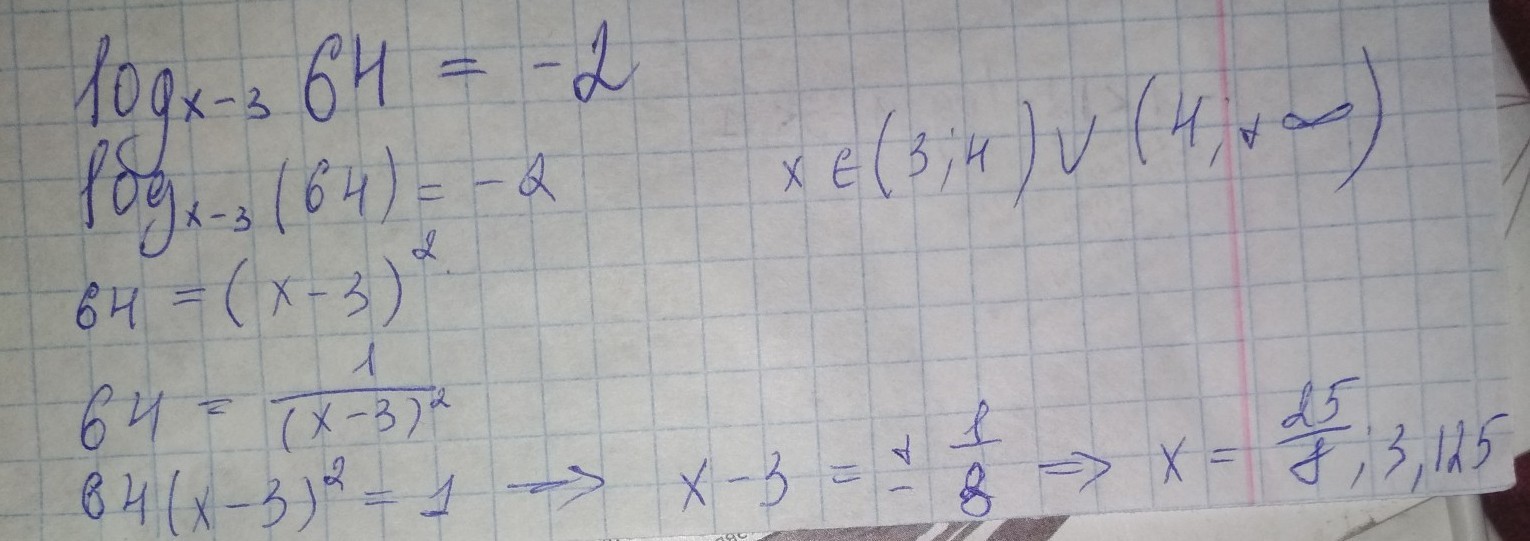 log_{x-3} 64 = -2
log_{x-3} (64) = -2    x ∈ (3; 4) ∪ (4; +∞)
64 = (x-3)^2
64 = \frac{1}{(x-3)^2}
64(x-3)^2 = 1 → x-3 = ± \frac{1}{8} ⇒ x = \frac{25}{8}; 3,125